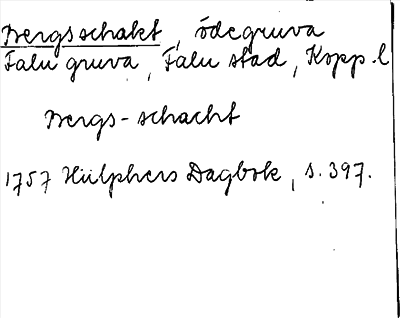 Bergsschakt, ödegruva
Falu gruva, Falu stad, Kopp.l
Bergs-schacht
1757 Hülphers Dagbok, s. 397.